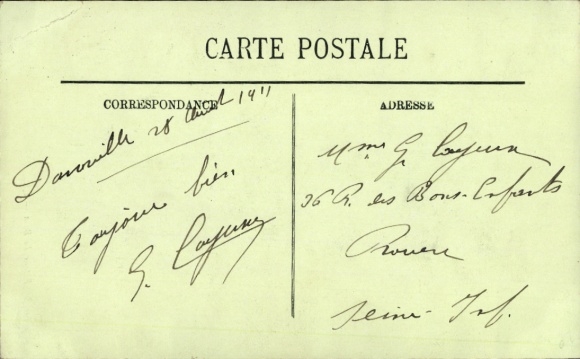 CARTE POSTALE
CORRESPONDANCE
ADRESSE
28 Août 1911
Toujours bien
G.
Mme G.
36 R. des Bons-Enfants
Rouen
Seine-Inf.